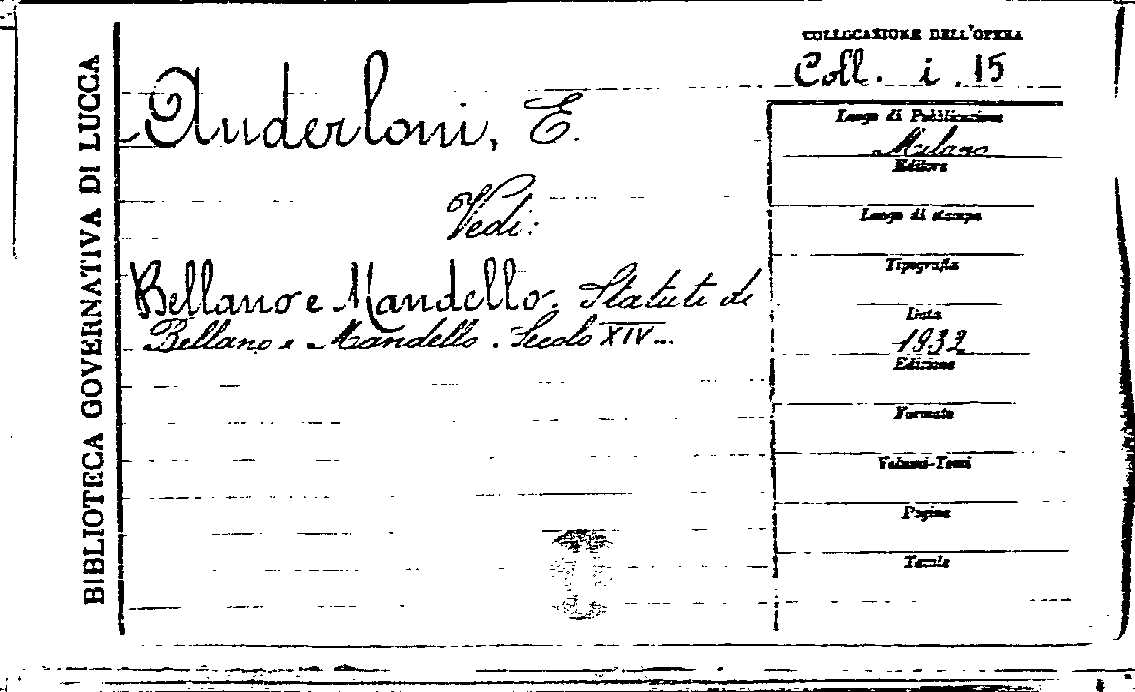 BIBLIOTECA GOVERNATIVA DI LUCCA
COLLOCAZIONE DELL'OPERA
Coll. i. 15
Anderloni, E.
Vedi:
Bellano e Mandello. Statuti di
Bellano e Mandello. Secolo XIV...
Luogo di Pubblicazione
Milano
Editore
Luogo di stampa
Tipografia
Data
1932
Edizione
Formato
Volumi-Tomi
Pagine
Tavole